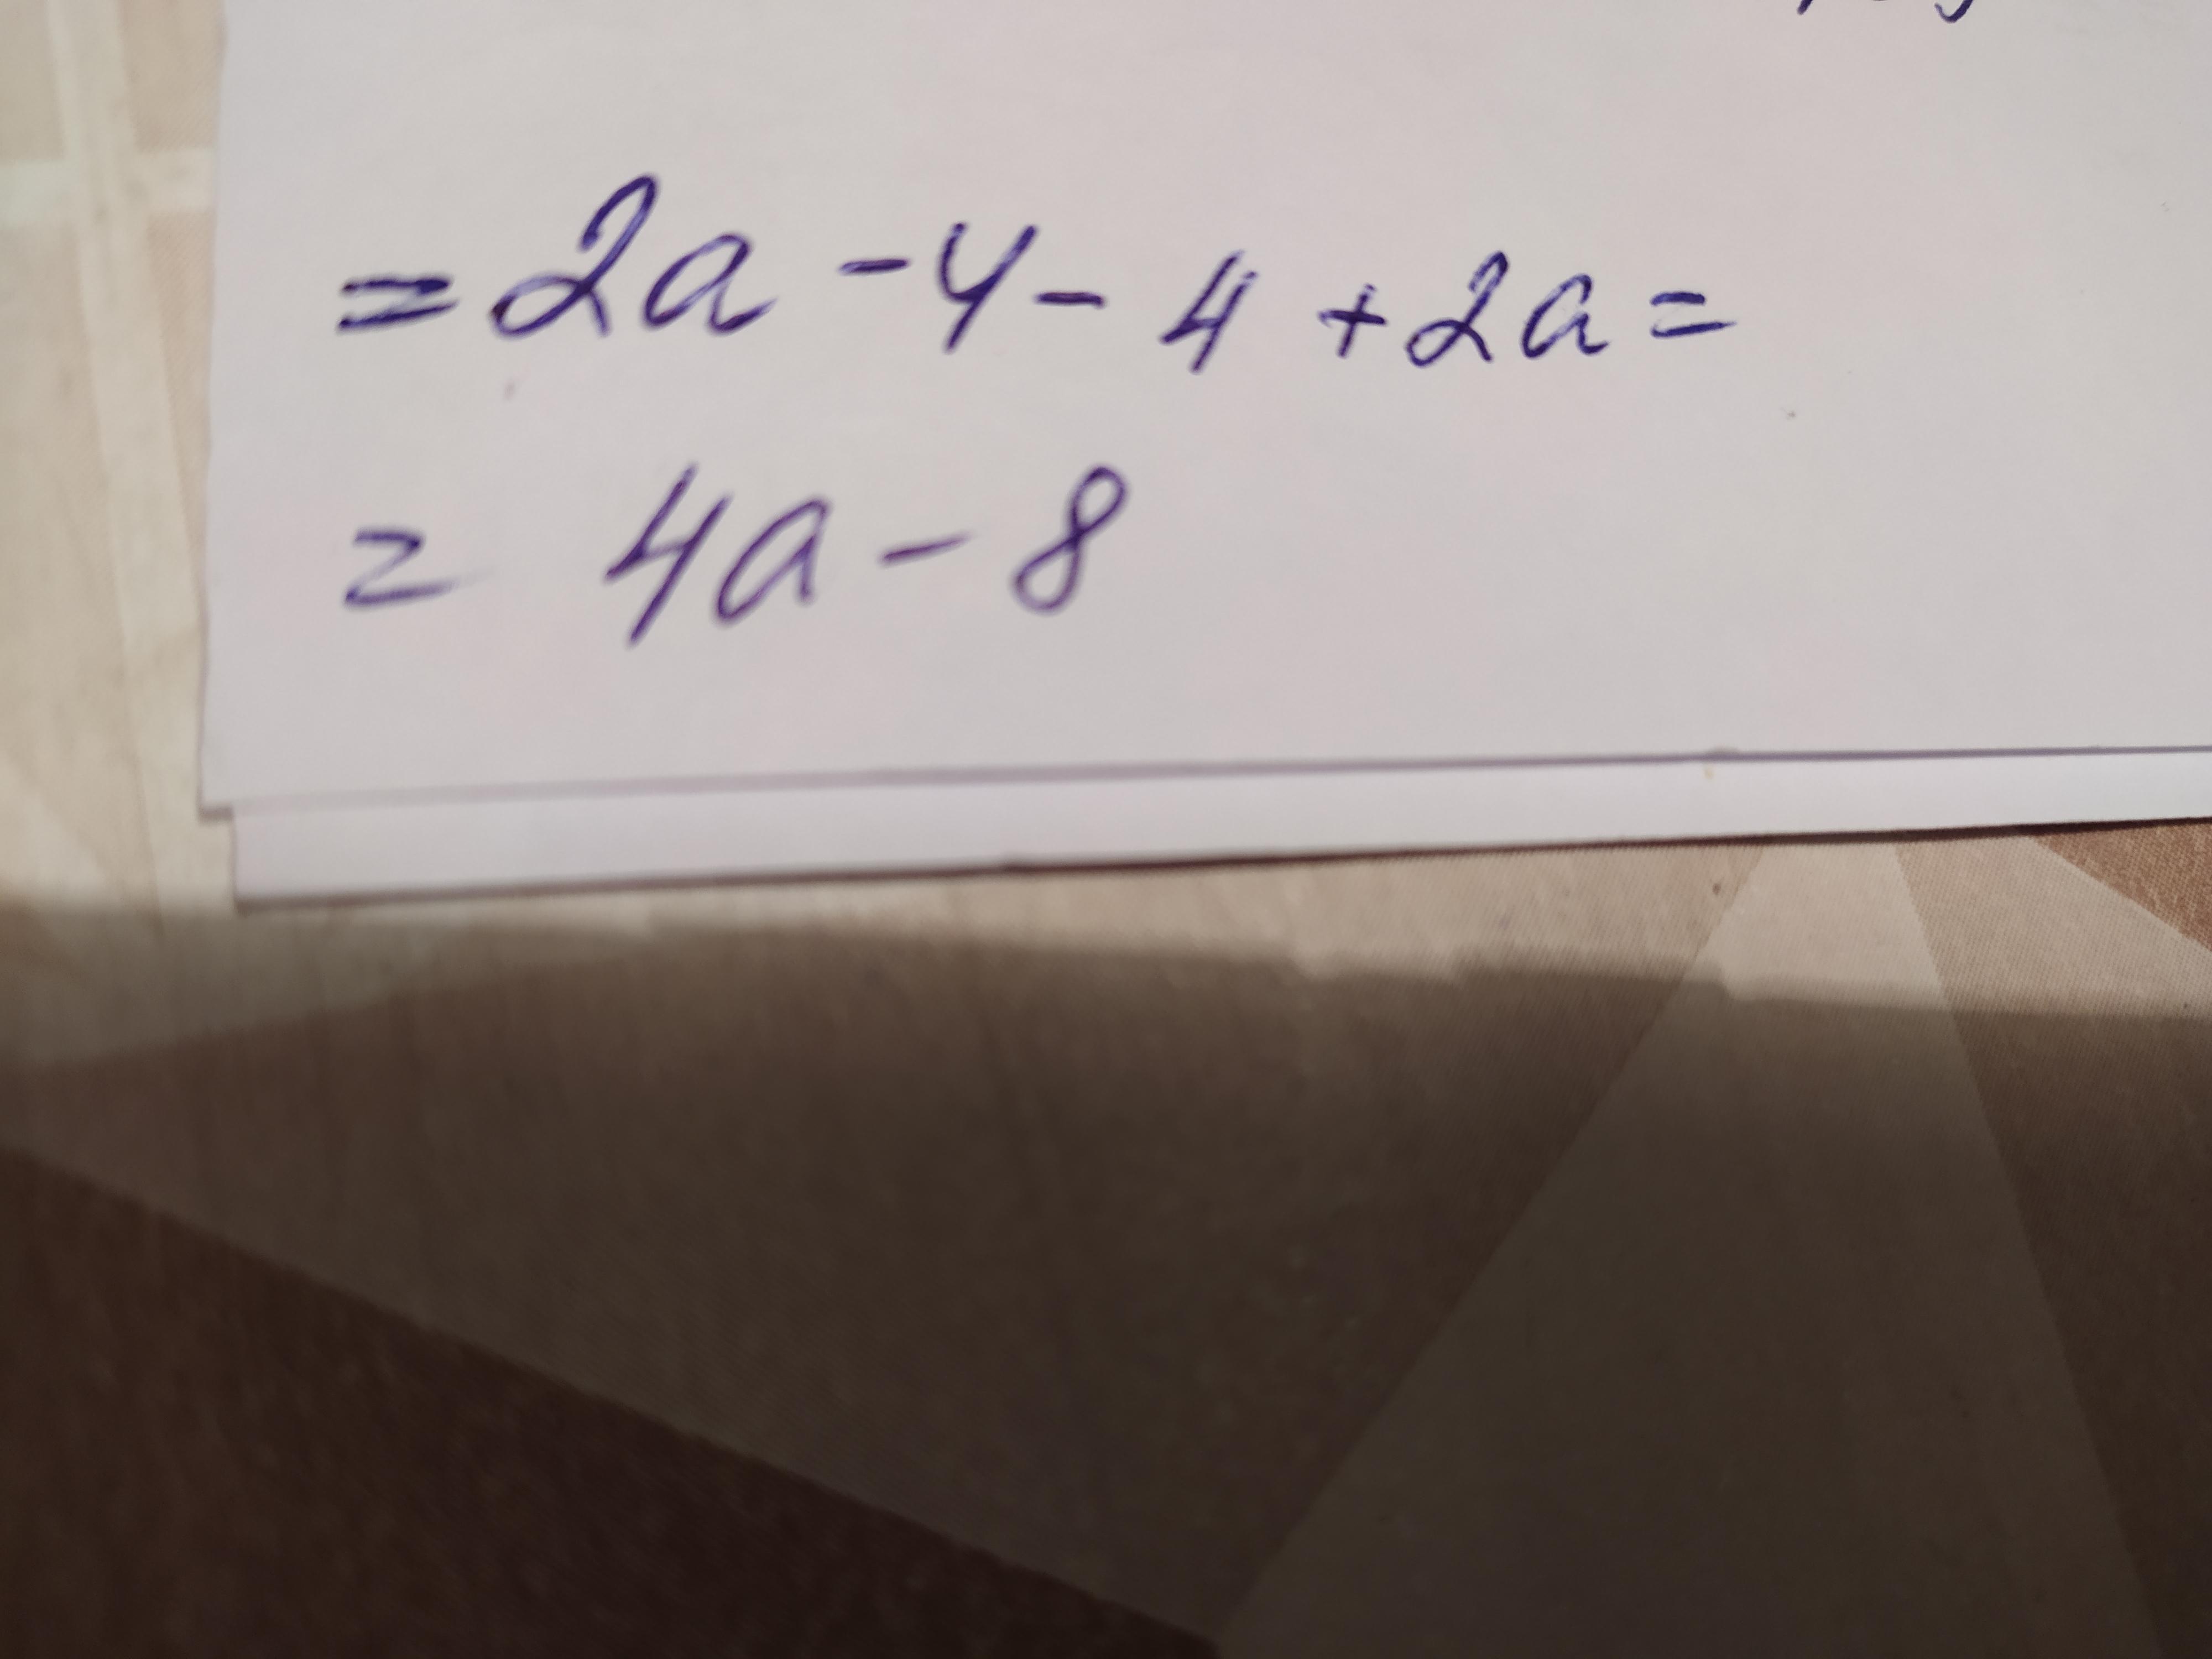 = 2a - 4 - 4 + 2a =
= 4a - 8